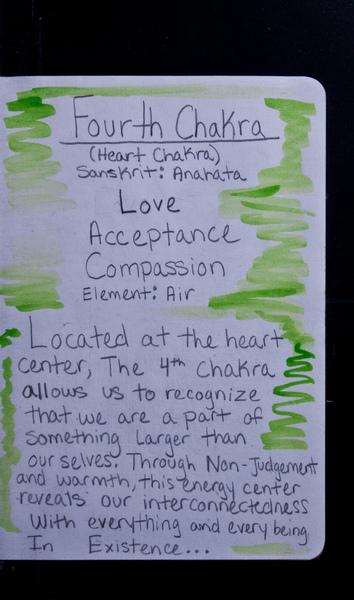 Fourth Chakra
(Heart Chakra)
Sanskrit: Anahata
Love
Acceptance
Compassion
Element: Air
Located at the heart
center, The 4th Chakra
allows us to recognize
that we are a part of
something Larger than
our selves. Through Non-Judgement
and warmth, this energy center
reveals our interconnectedness
With everything and every being
In Existence...